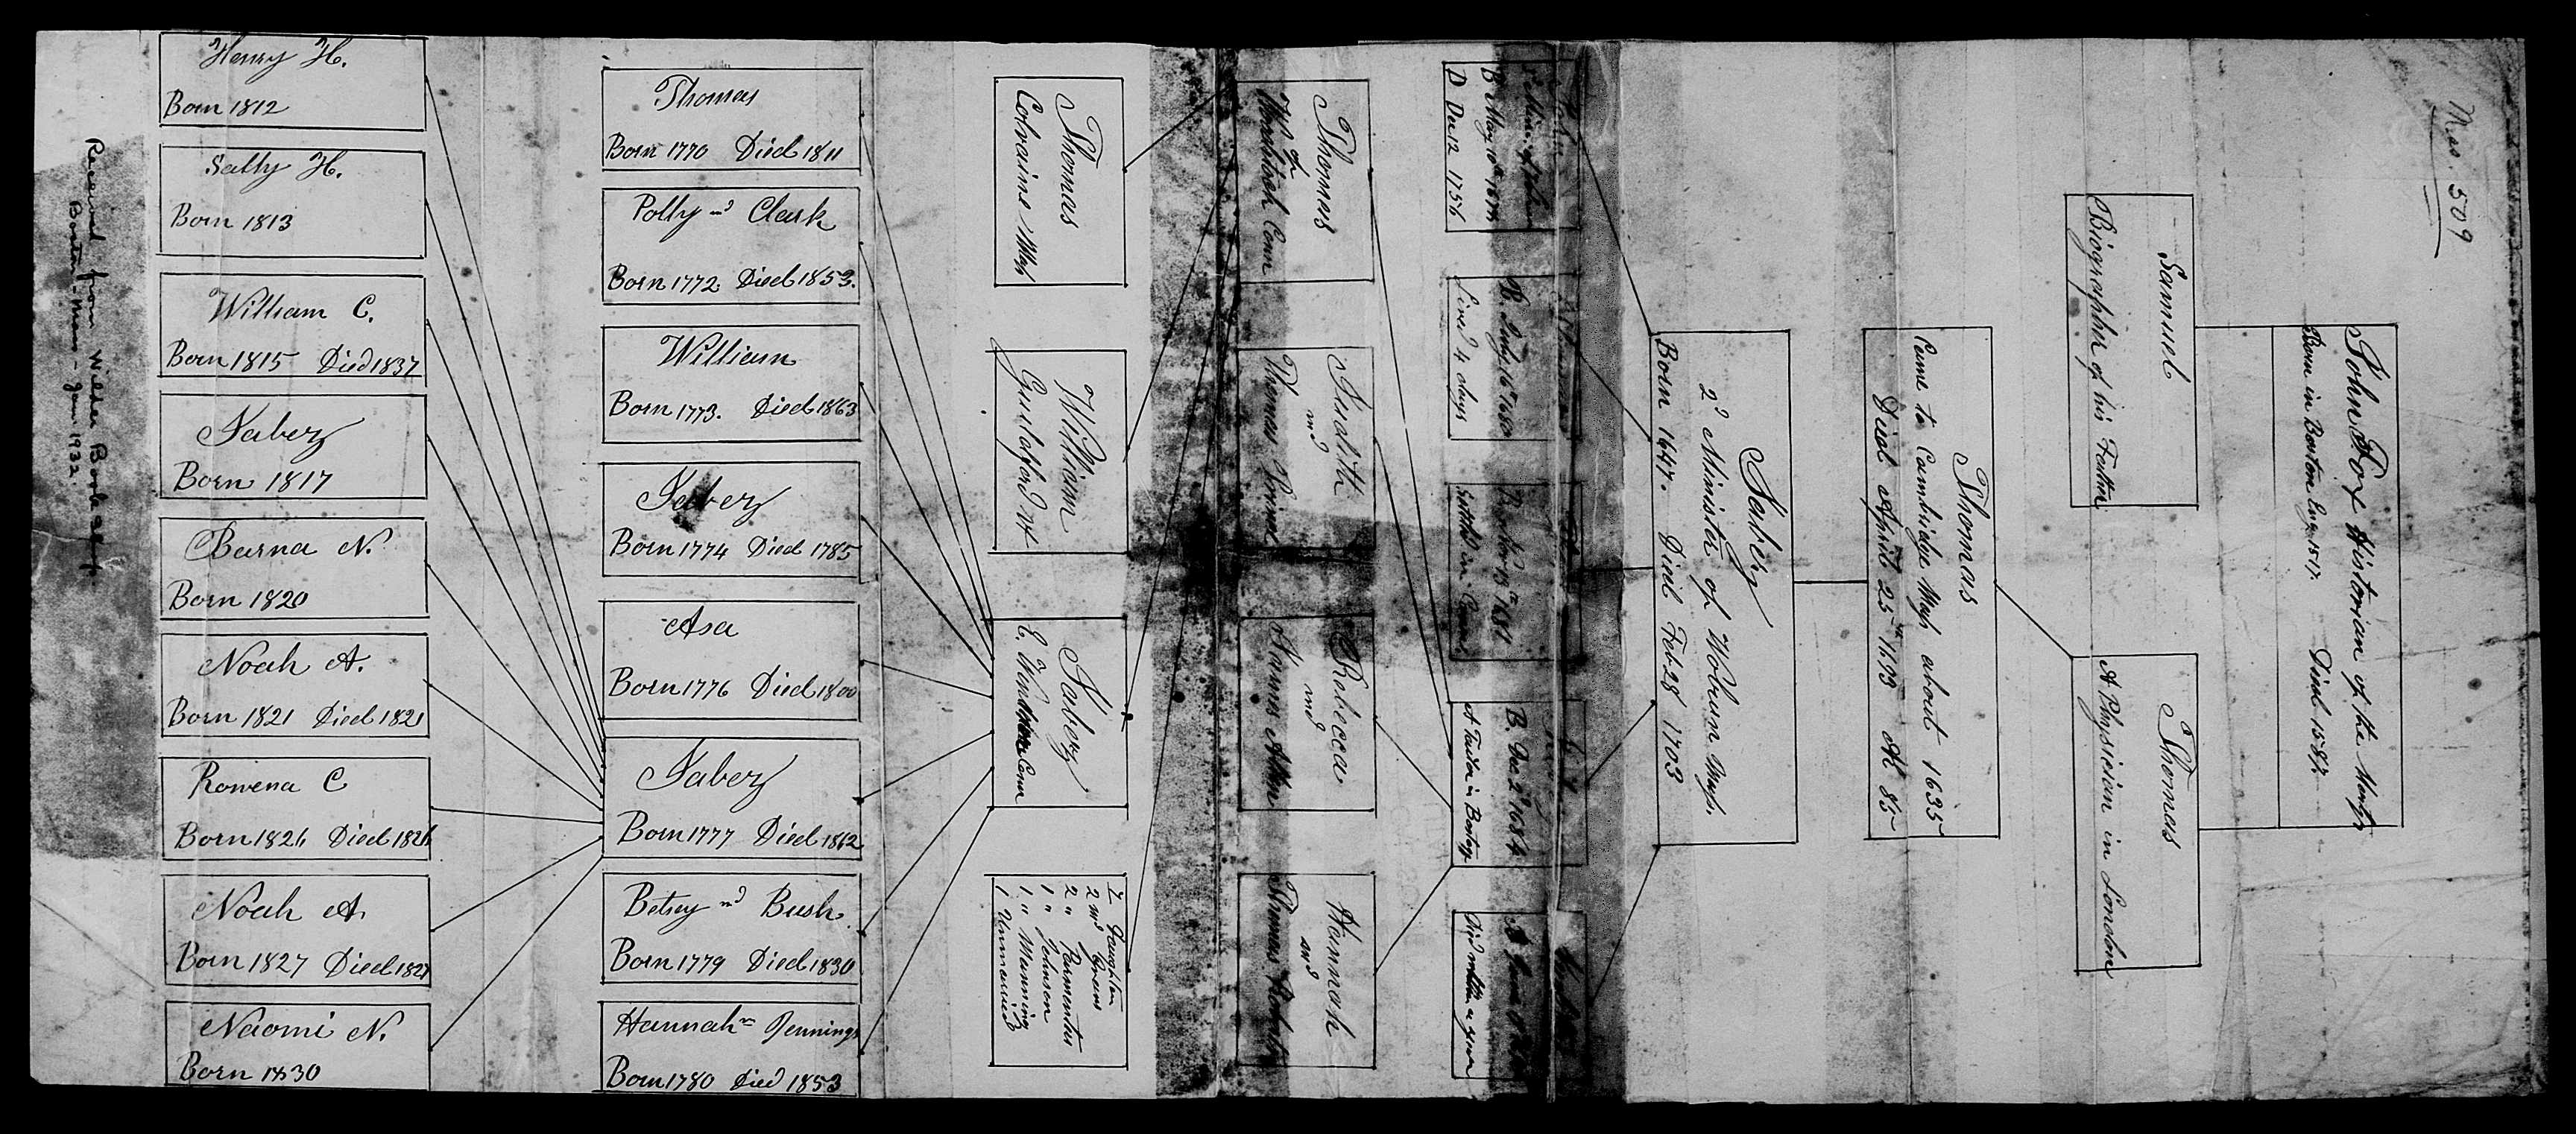 Mss. 509
John Fox Historian of the Martyrs
Born in Boston Eng. 1517. Died 1587.
Samuel
Biographer of his Father
Thomas
A Physician in London
Thomas
Came to Cambridge Mass about 1635
Died April 25th 1693 Æt 85
Jabez
2d Minister of Woburn Mass.
Born 1647. Died Feb 28 1703
D Dec 12 1756
B. July 16th 1680
Lived 4 days
Settled in Conn
B. Dec 2d 1684
A Tailor in Boston
Thomas
of
Conn
Judith
md
Thomas Prince
Rebecca
md
Hannah
md
Thomas
Thomas
Colraine Mass
William
Guilford Vt
Jabez
E. Conn
7 Daughters
2 md
2 " Parmenter
1 " Johnson
1 " Manning
1 Unmarried
Thomas
Born 1770 Died 1811
Polly md Clark
Born 1772 Died 1853.
William
Born 1773. Died 1863
Jabez
Born 1774 Died 1785
Asa
Born 1776 Died 1800
Jabez
Born 1777 Died 1862
Betsey md Bush
Born 1779 Died 1830
Hannah m Jennings
Born 1780 Died 1853
Henry H.
Born 1812
Sally H.
Born 1813
William C.
Born 1815 Died 1837
Jabez
Born 1817
Barna N.
Born 1820
Noah A.
Born 1821 Died 1821
Rowena C
Born 1826 Died 1826
Noah A.
Born 1827 Died 1827
Naomi N.
Born 1830
Received from Wilder Book Shop
Boston - Mass - Jan 1932